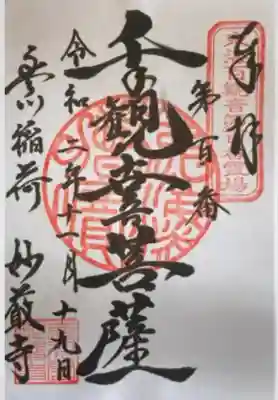 奉拝
第百番
千手観音菩薩
令和二年十一月十九日
豊川稲荷 妙厳寺